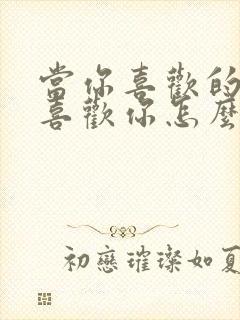 當你喜歡的
喜歡你怎麼
初戀璀璨如夏